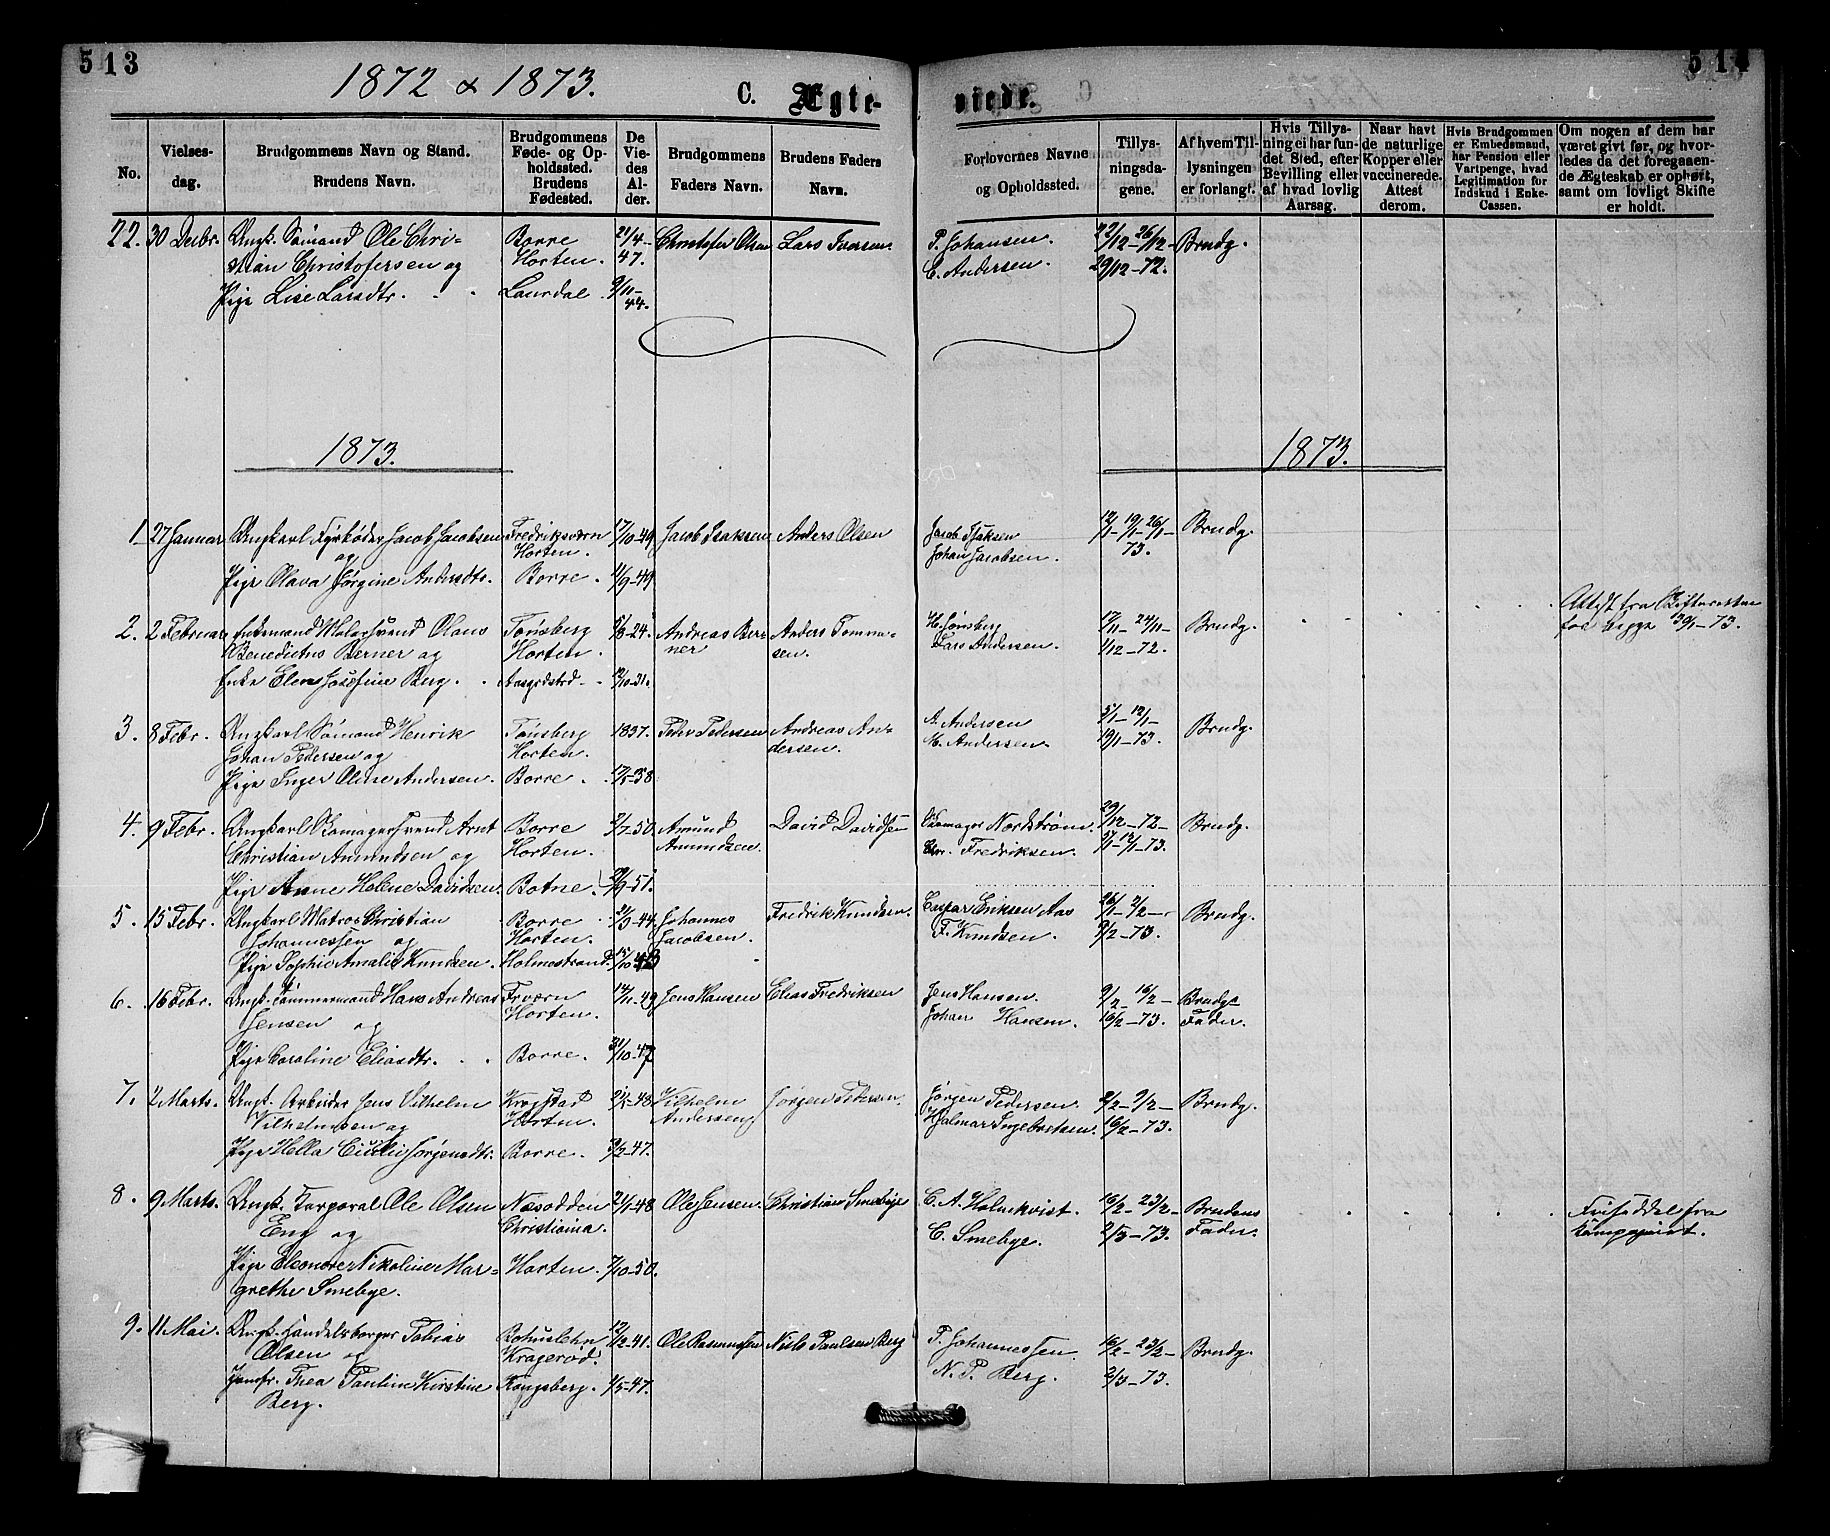 513
514
1872 & 1873.
C. Ægte-
viede.
No.
Vielses-
dag.
Brudgommens Navn og Stand.
Brudens Navn.
Brudgommens
Føde- og Op-
holdssted.
Brudens
Fødested.
De
Vie-
des
Al-
der.
Brudgommens
Faders Navn.
Brudens Faders
Navn.
Forlovernes Navne
og Opholdssted.
Tillys-
ningsda-
gene.
Af hvem Til-
lysningen
er forlangt.
Hvis Tillys-
ning ei har fun-
det Sted, efter
Bevilling eller
af hvad lovlig
Aarsag.
Naar havt
de naturlige
Kopper eller
vaccinerede.
Attest
derom.
Hvis Brudgommen
er Embedsmand,
har Pension eller
Vartpenge, hvad
Legitimation for
Indskud i Enke-
Cassen.
Om nogen af dem har
været givt før, og hvor-
ledes da det foregaaen-
de Ægteskab er ophørt,
samt om lovligt Skifte
er holdt.
22. 30 Decbr. Ungk. Sømand Ole Chri-
stian Christofersen og
Pige Lise Larsdtr.
Borre
Horten.
Laurdal
21/4-
47.
9/11-
44.
Christofer Olsen
Lars Iversen.
P. Johansen.
C. Andersen.
22/12-26/12-
29/12-72.
Brudg.
1873.
1873.
1 27 Januar Ungkarl Fyrbøder Jacob Jacobsen
og
Pige Olava Jørgine Andersdtr.
Fredriksværn
Horten.
Borre.
17/10-49
11/9-49
Jacob Isaksen
Anders Olsen
Jacob Isaksen
Johan Jacobsen.
12/1-19/1-26/1-
73.
Brudg.
2. 2 Februar Enkemand Malersvend Olaus
Benedictus Berner og
Enke Elen Josefine Berg.
Tønsberg
Horten.
Aasgrdstrd
5/8-24.
12/10-31.
Andreas Ber-
ner
Anders Tomme-
sen.
H. Tønsberg
Lars Andersen.
17/11-24/11-
1/12-72.
Brudg.
Attest fra Skifteretten
for begge 30/1-73.
3. 8 Febr. Ungkarl Sømand Henrik
Johan Pedersen og
Pige Inger Oline Andersen.
Tønsberg
Horten.
Borre.
1837.
17/5-38
Peder Pedersen
Andreas An-
dersen.
A. Andersen
M. Andersen.
5/1-12/1-
19/1-73.
Brudg.
4. 9 Febr. Ungkarl Skomagersvend Arnt
Christian Amundsen og
Pige Anne Helene Davidsen.
Borre
Horten.
Botne.
2/7-50.
29/9-51.
Amund
Amundsen.
David Davidsen
Skomager Nordstrøm.
Fredriksen.
29/12-72-
5/1-12/1-73.
Brudg.
5. 15 Febr. Ungkarl Matros Christian
Johannessen og
Pige Sophie Amalie Knudsen.
Borre
Horten.
Holmestrand
21/3-44.
15/10-48
Johannes
Jacobsen.
Fredrik Knudsen.
Caspar Eriksen Aas
F. Knudsen.
26/1-2/2-
9/2-73.
Brudg.
6. 16 Febr. Ungk. Tømmermand Hans Andreas
Jensen og
Pige Caroline Eliasdtr.
Frværn
Horten.
Borre.
14/11-49
31/10-47
Jens Hansen
Elias Fredriksen
Jens Hansen.
Johan Hansen.
9/2-16/2-
16/2-73.
Brudgs
Fader.
7. 2 Marts. Ungk. Arbeider Jens Vilhelm
Vilhelmsen og
Pige Hella Cicilie Jørgensdtr.
Kragstad
Horten.
Borre.
21/5-48
3/2-47.
Vilhelm
Andersen
Jørgen Pedersen.
Jørgen Pedersen.
Hjalmar Ingebretsen.
2/2-9/2-
16/2-73.
Brudg.
8. 9 Marts. Ungk. Korporal Ole Olsen
Eng og
Pige Eleonore Nikoline Mar-
grethe Smebye.
Næsodden
Christiania.
Horten.
21/1-48
7/10-50.
Ole Jensen.
Christian Smebye
C. A. Holmkvist.
C. Smebye.
16/2-23/2-
2/3-73.
Brudens
Fader.
Friseddel fra
Kompagniet.
9. 11 Mai. Ungk. Handelsborger Tobias
Olsen og
Jomfr. Thea Pauline Kirstine
Berg.
Bohuslehn
Kragerød.
Kongsberg.
12/12-41.
1/5-47.
Ole Rasmussen
Niels Paulsen Berg
P. Johannessen.
N. P. Berg.
16/2-23/2-
2/3-73.
Brudg.